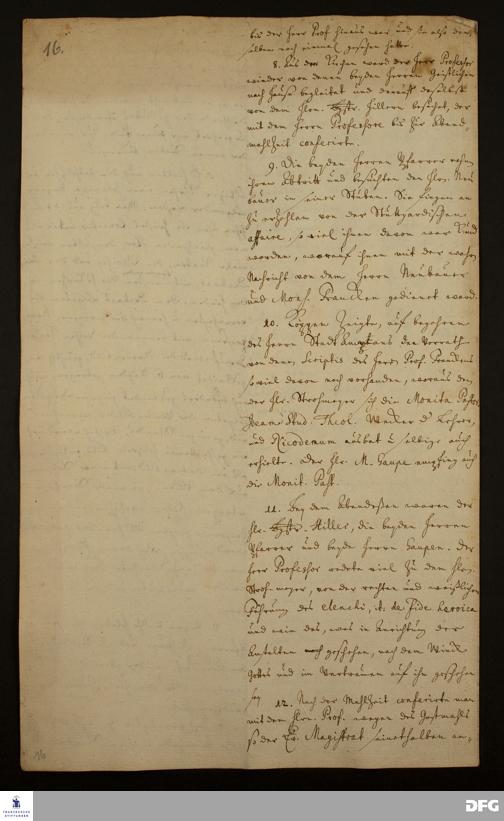 16.
bis der Herr Prof hinaus war und sie also den-
selben noch einmal gesehen hatte.
8. Aus der Kirchen ward der Herr Professor
wieder von denen beyden Herren Geistlichen
nach Hause begleitet und darauf daselbst
von dem Hrn. Hillern besuchet, der
mit dem Herrn Professore bis zur Abend-
mahlzeit conferirte.
9. Die beyden Herren Pfarrer nahmen
ihren Abtritt und besuchten den Hrn. Neu
bauer in seiner Stuben. Sie fingen an
zu erzehlen von der Stutgardischen
affaire, so viel ihnen davon war kund
worden, worauf ihnen mit der wahren
Nachricht von dem Herrn Neubauer
und Mons. Francken gedienet ward.
10. Köppen zeigte, auf begehren
des Herrn Stadt den Vorrath
von denen Scriptis des Herrn Prof. Franckens
so viel davon noch vorhanden, woraus denn
der Hr. Strohmeyer sich die Monita Pastor.
Stud. Theol. d Lehrer,
und Nicodemum ausbat u selbige auch
erhielte. Der Hr. M. Haupe empfing auch
die Monit. Past.
11. Bey dem Abendeßen waren der
Hr. Hiller, die beyden Herren
Pfarrer und beyde Herren Haupen. Der
Herr Professor redete viel zu dem Hrn.
Strohmeyer, von der rechten und
Führung des elenchi, it: de fide heroica
und wie des, was in Anrichtung der
Anstalten geschehen, nach dem Winck
Gottes und im Vertrauen auf ihn geschehen
sey
12. Nach der Mahlzeit conferirte man
mit dem Hrn. Prof. wegen des Gastmahls
so der Magistrat seinethalben an-
16
FRANCKESCHE STIFTUNGEN
DFG